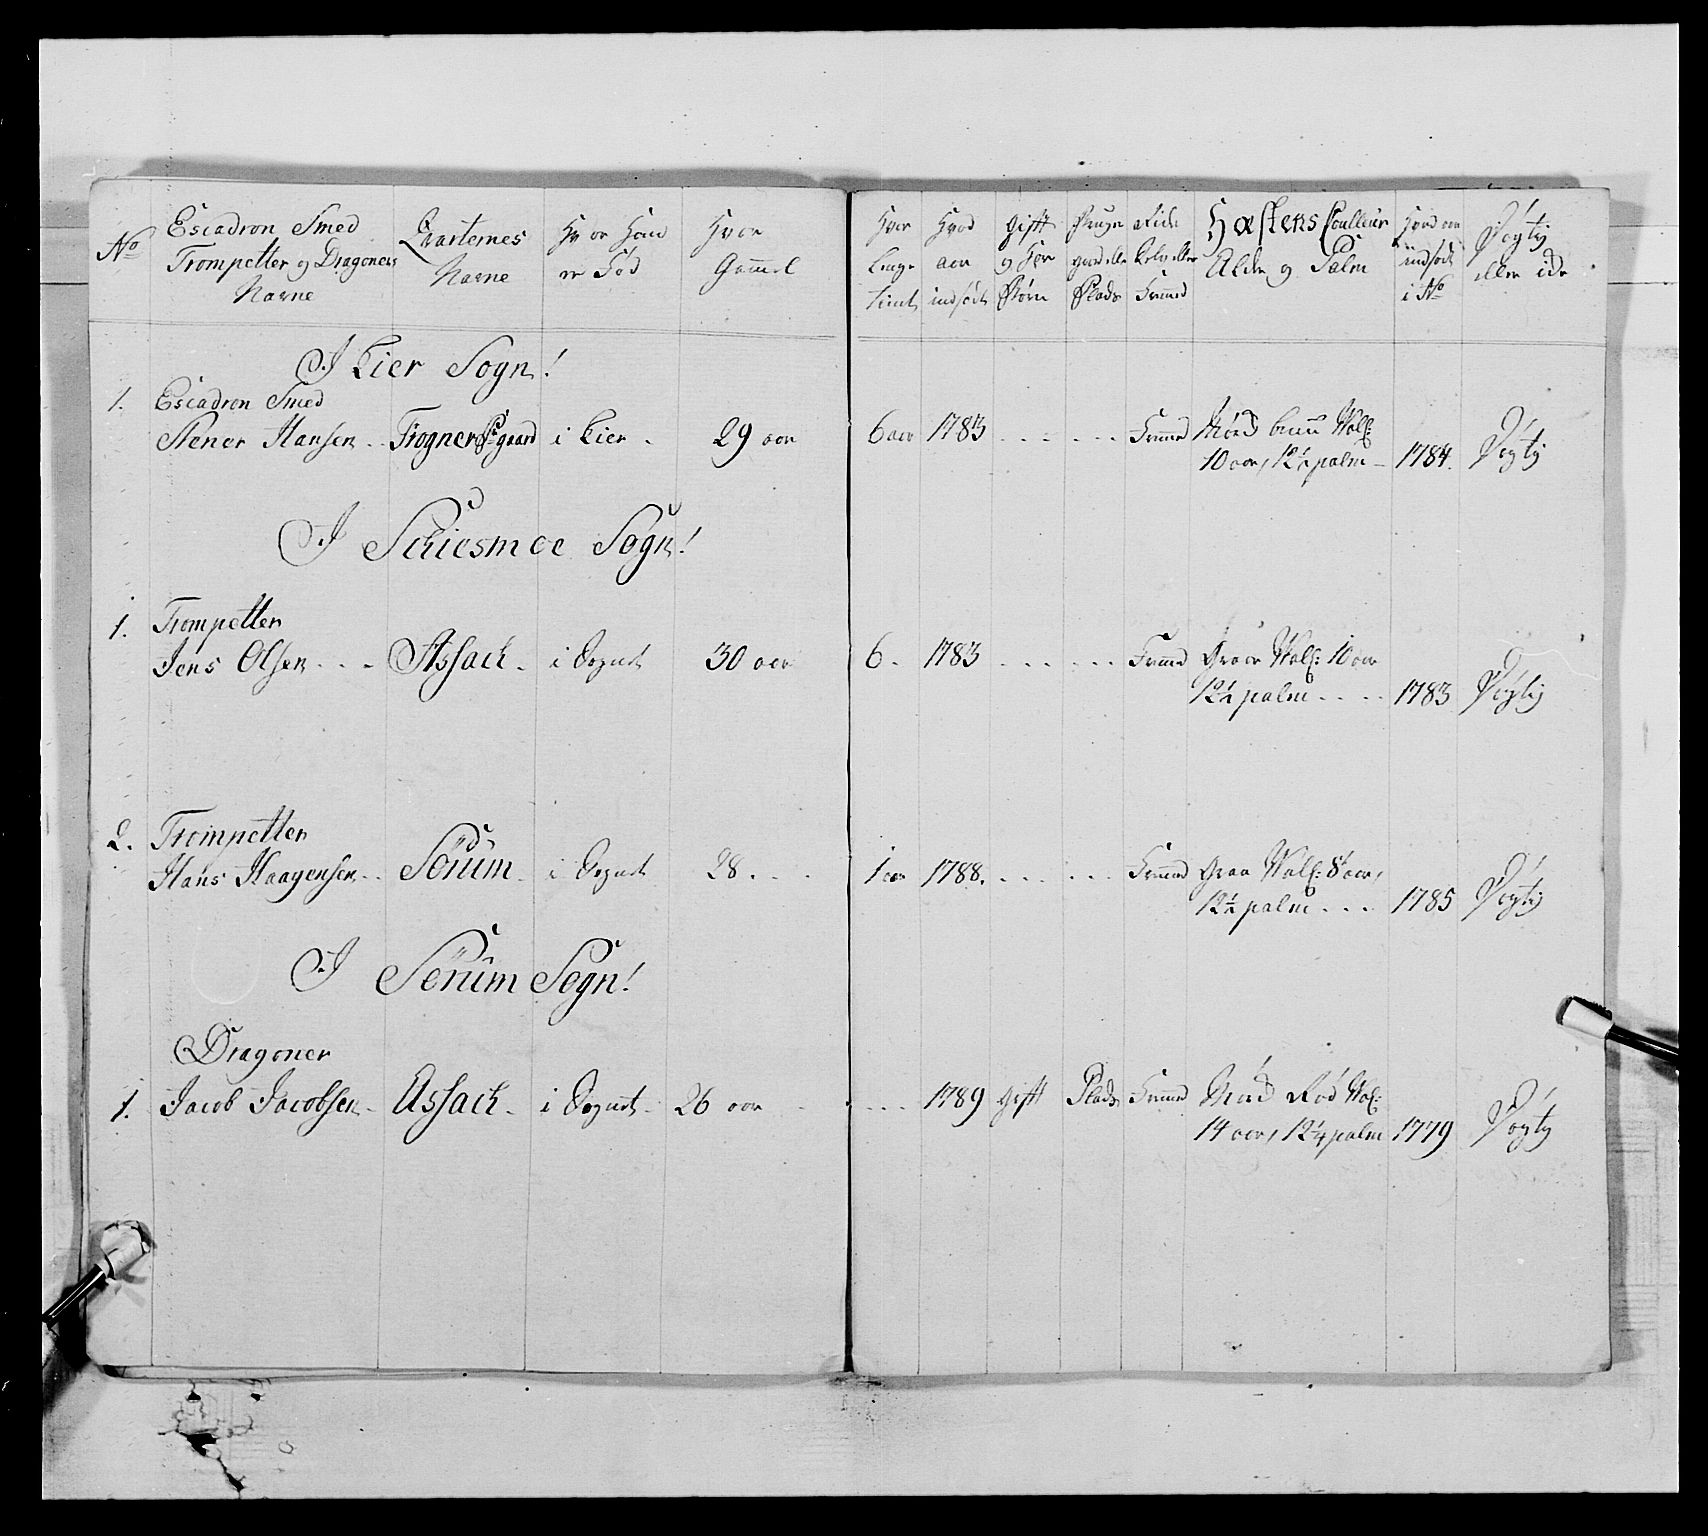 No
Escadron Smed
Trompetter og Dragoners
Navne
Qvarternes
Navne
Hvor Hand
er Fød
Hvor
Gammel
Hvor
Længe
tient
Hvad
aar
indsødt
Gift
og
Børn
Bruger
gaard eller
Plads
eller
Frimed
Hæstens Coulleur
Alder og Palm
Hvad aar
indsødt
i No
Dygtig
eller icke
I Lier Sogn!
1. Escadron Smed
Stener Hansen .. Frogner Pr. gaard i Lier . 29 aar 6 aar 1783 ...... Frimed Mörk bruun Val:
10 aar, 12½ palm – 1784. Dygtig
I Schiesmoe Sogn!
1. Trompetter
Jens Olsen ... Assack . i Sognet 30 aar 6 . 1783 ...... Frimed Graa Val: 10 aar
12½ palm .... 1783 Dygtig
2. Trompetter
Hans Haagensen .. Sörum . i Sognet 28 ... 1 aar 1788. ...... Frimed Graa Val: 8 aar,
12½ palm ... 1785 Dygtig
I Sörum Sogn!
Dragoner
1. Jacob Jacobsen . Assack . i Sognet . 26 aar .... 1789 Gift Plads Frimed Rød Val:
14 aar, 12¼ palm 1779 Dygtig